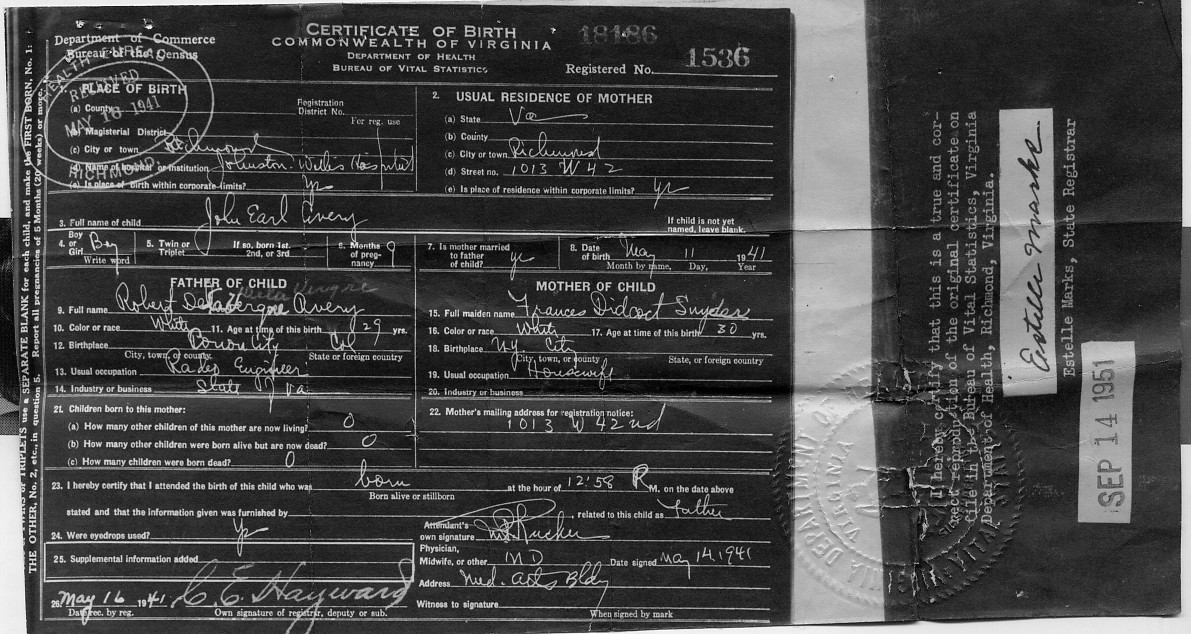 Department of Commerce
Bureau of the Census
CERTIFICATE OF BIRTH
COMMONWEALTH OF VIRGINIA
DEPARTMENT OF HEALTH
BUREAU OF VITAL STATISTICS
18186
Registered No. 1536
HEALTH BUREAU
RECEIVED
MAY 16 1941
RICHMOND.
1. PLACE OF BIRTH
(a) County
Registration District No.
For reg. use
(b) Magisterial District
(c) City or town Richmond
(d) Name of hospital or institution Johnston-Willis Hospital
(e) Is place of birth within corporate limits? Yes
2. USUAL RESIDENCE OF MOTHER
(a) State Va
(b) County
(c) City or town Richmond
(d) Street no. 1013 W 42
(e) Is place of residence within corporate limits? Yes
3. Full name of child John Earl Avery
If child is not yet named, leave blank.
4. Boy or Girl Boy
Write word
5. Twin or Triplet
If so, born 1st. 2nd, or 3rd
6. Months of pregnancy 9
7. Is mother married to father of child? yes
8. Date of birth May 11 1941
Month by name, Day, Year
FATHER OF CHILD
9. Full name Robert Avery
10. Color or race White 11. Age at time of this birth 29 yrs.
12. Birthplace Col
City, town, or county State or foreign country
13. Usual occupation Radio Engineer
14. Industry or business State of Va
MOTHER OF CHILD
15. Full maiden name Frances Didcoct Snyder
16. Color or race White 17. Age at time of this birth 30 yrs.
18. Birthplace NY City
City, town, or county State, or foreign country
19. Usual occupation Housewife
20. Industry or business
21. Children born to this mother:
(a) How many other children of this mother are now living? 0
(b) How many other children were born alive but are now dead? 0
(c) How many children were born dead? 0
22. Mother's mailing address for registration notice:
1013 W 42nd
23. I hereby certify that I attended the birth of this child who was born at the hour of 12:58 P.M. on the date above
Born alive or stillborn
stated and that the information given was furnished by , related to this child as father
24. Were eyedrops used? yes
25. Supplemental information added
Attendant's own signature Rucker
Physician, Midwife, or other MD Date signed May 14, 1941
Address Med. Arts Bldg
Witness to signature
When signed by mark
26. May 16 1941 C. E. Hayward
Date rec. by reg. Own signature of registrar, deputy or sub.
TRIPLETS use a SEPARATE BLANK for each child, and make the FIRST BORN, No. 1:
THE OTHER, No. 2, etc., in question 5. Report all pregnancies of 5 Months (20 weeks) or more.
I hereby certify that this is a true and cor-
rect reproduction of the original certificate on
file in the Bureau of Vital Statistics, Virginia
Department of Health, Richmond, Virginia.
Estelle Marks
Estelle Marks, State Registrar
SEP 14 1951